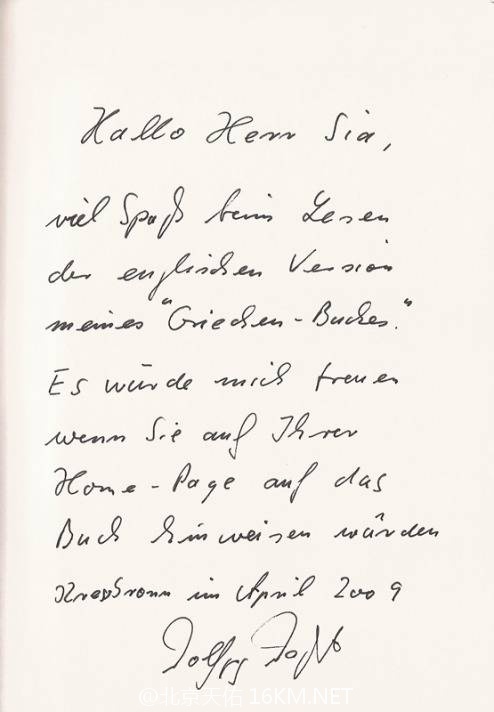 Hallo Herr Sia,
viel Spaß beim Lesen
der englischen Version
meines "Griechen-Buches."
Es würde mich freuen
wenn Sie auf Ihrer
Home-Page auf das
Buch hinweisen würden
Kressbronn im April 2009
@北京天佑 16KM.NET